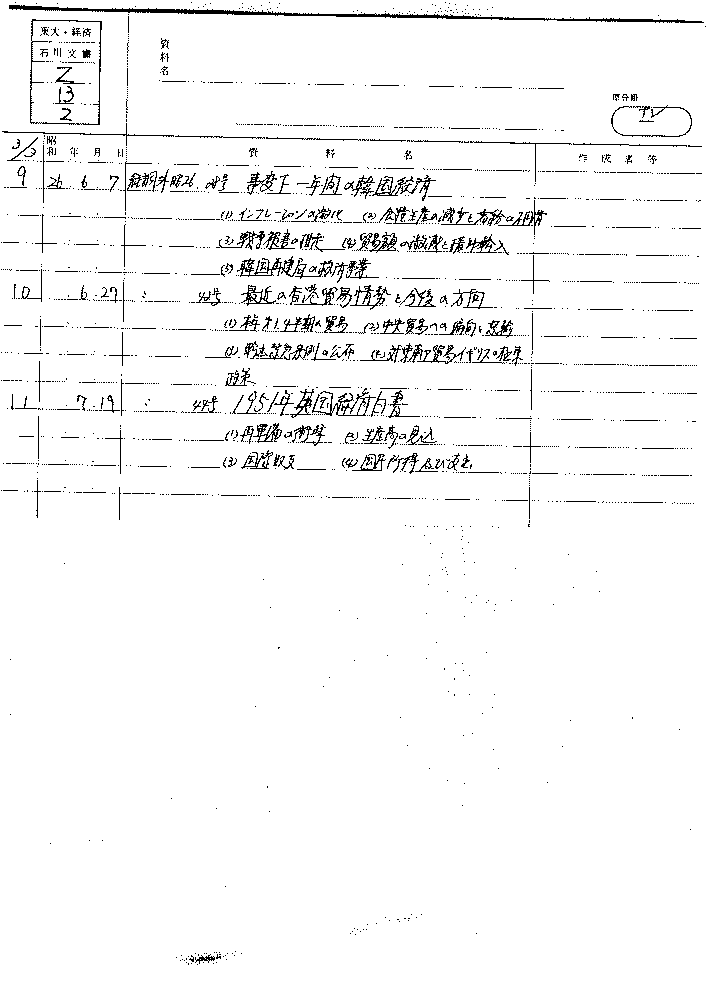 東大・経済
石川文書
Z
13
2
資料名
原分類
IV
3/3
昭和 年 月 日 資 料 名 作成者等
9 26 6 7 経調外昭26 号 事変下一年間の韓国経済
(1) インフレーションの激化 (2) 生産の減少と
(3) 戦争損害の推定 (4) 貿易額の激減と援助輸入
(5) 韓国再建局の救済事業
10 6.27 〃 42号 最近の香港貿易情勢と今後の方向
(1) 本年1.4半期の貿易 (2) 中共貿易への
(3) 戦略禁輸 の公布 (4) 対東南ア貿易イギリスの
政策
11 7.19 〃 44号 1951年英国経済白書
(1) 再軍備の衝撃 (2) 生産高の見込
(3) 国際収支 (4) 国民所得及び支出